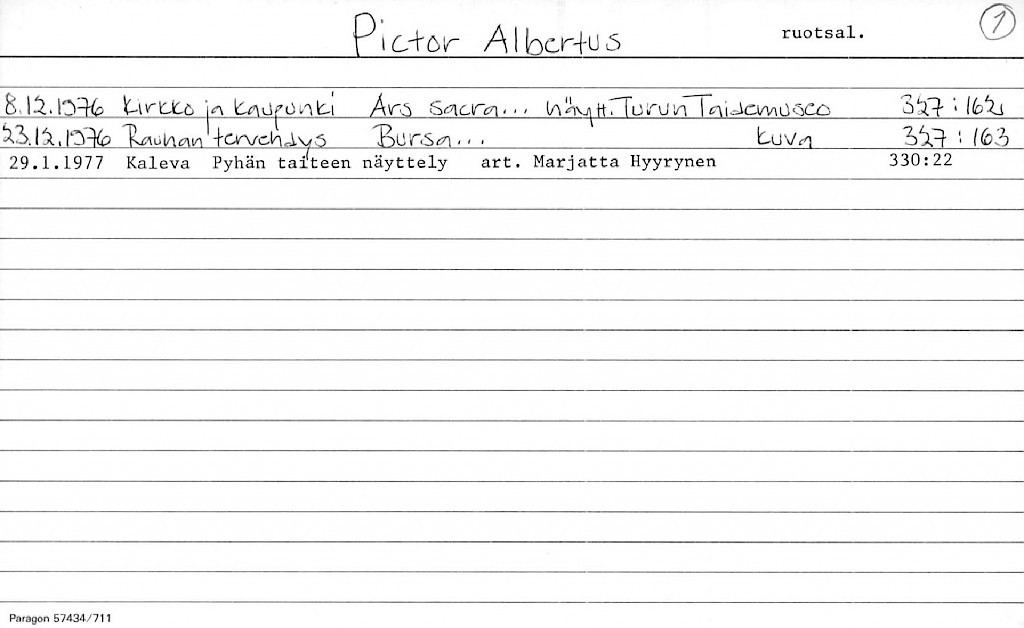 Pictor Albertus ruotsal. 1
8.12.1976 Kirkko ja kaupunki Ars sacra... näytt. Turun Taidemuseo 327:162
23.12.1976 Rauhan tervehdys Bursa... kuva 327:163
29.1.1977 Kaleva Pyhän taiteen näyttely art. Marjatta Hyyrynen 330:22
Paragon 57434/711